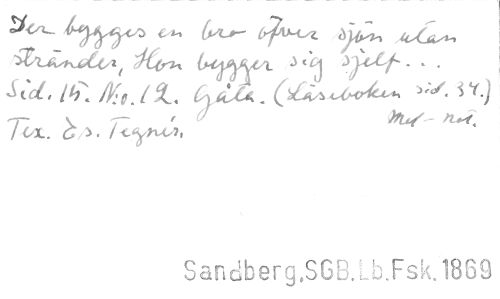 Der bygges en bro öfver sjön utan
stränder, Hon bygger sig sjelf...
Sid. 15. N:o. 12. Gåta. (Läseboken sid. 34.)
Mel-not.
Tex. Es. Tegnér.
Sandberg,SGB.Lb.Fsk.1869